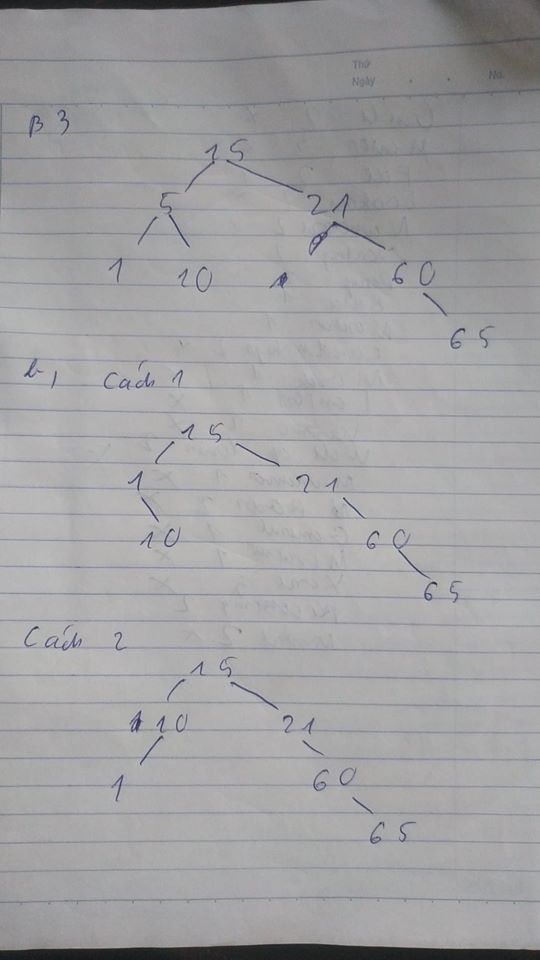 Thứ
Ngày No.
B 3
15
5 21
1 10 60
65
b, Cách 1
15
1 21
10 60
65
Cách 2
15
10 21
1 60
65